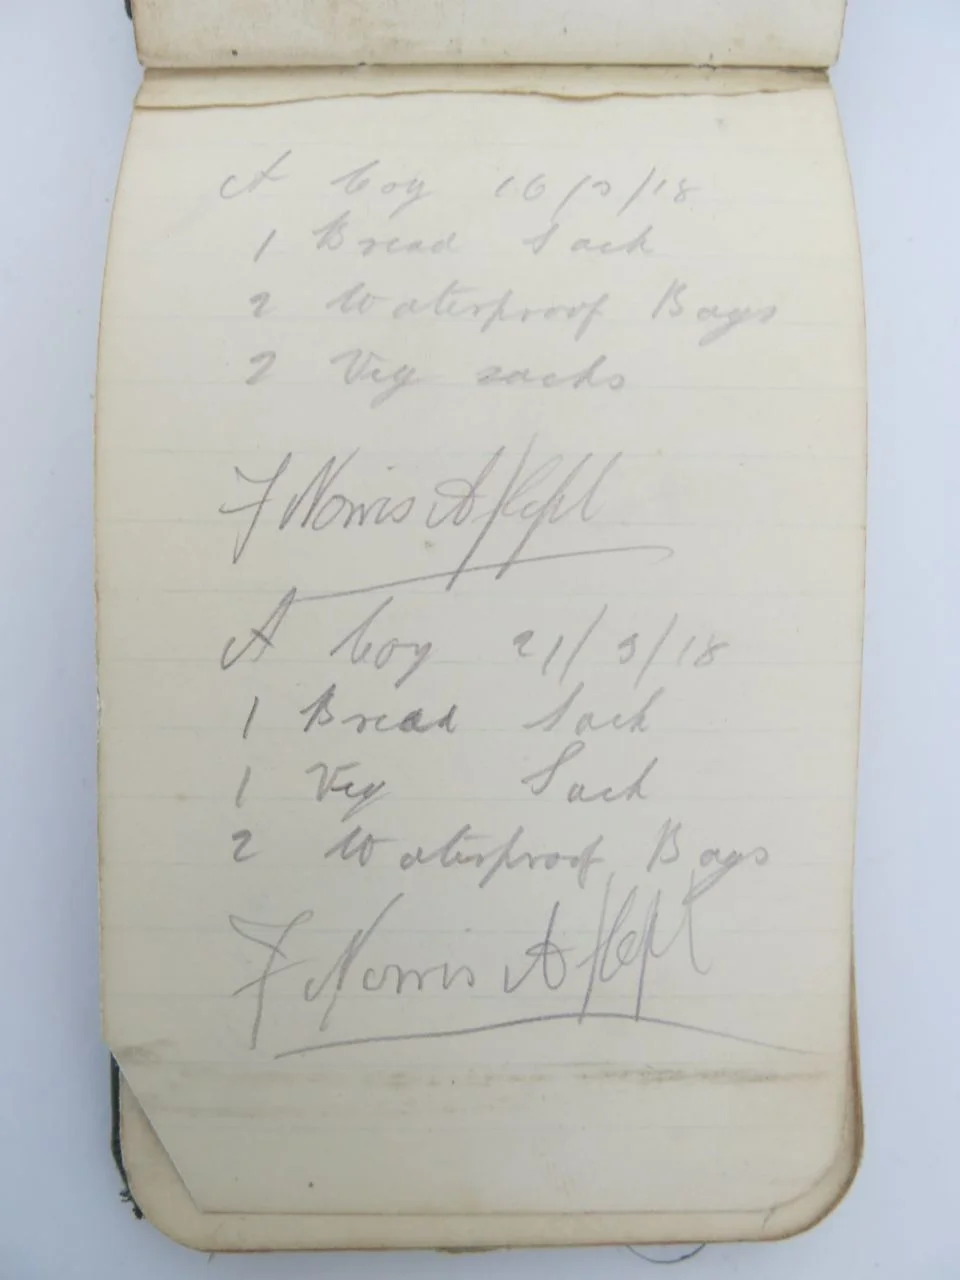 A Coy 16/3/18
1 Bread Sack
2 Waterproof Bags
2 Veg sacks
F Norris A/Cpl
A Coy 21/3/18
1 Bread Sack
1 Veg Sack
2 Waterproof Bags
F Norris A/Cpl